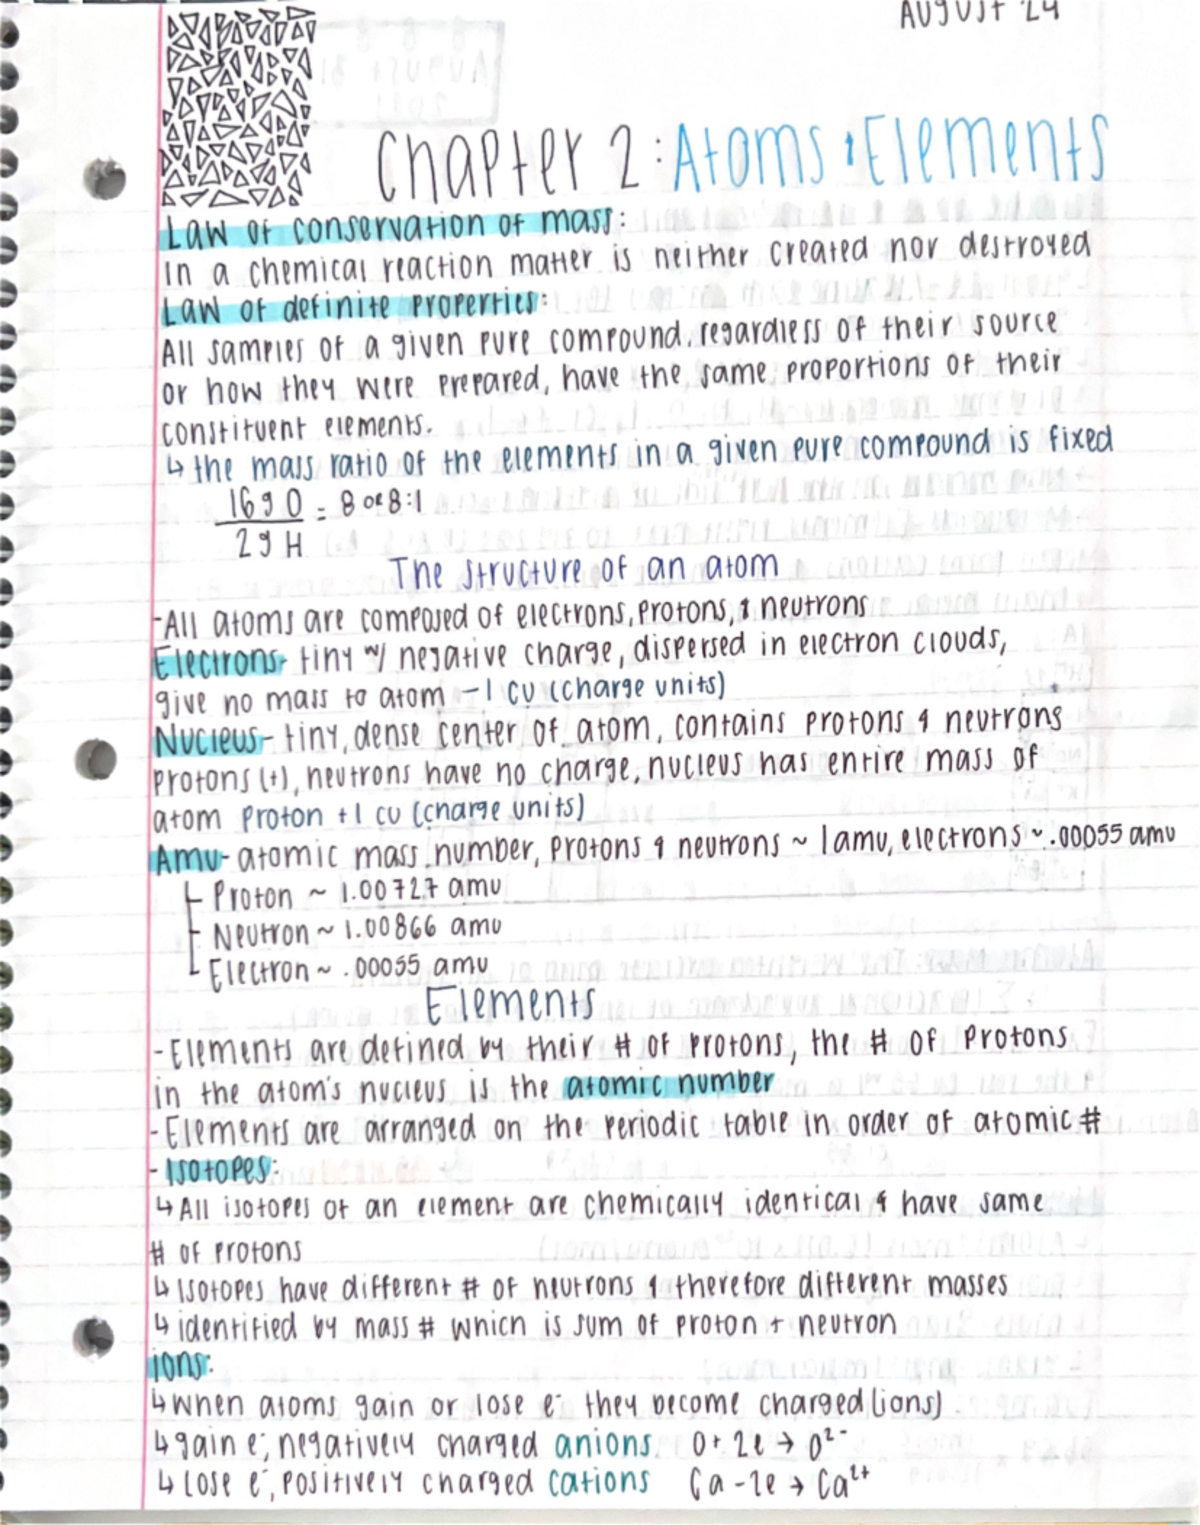 AUGUST 24
Chapter 2: Atoms & Elements
Law of conservation of mass:
In a chemical reaction matter is neither created nor destroyed
Law of definite properties:
All samples of a given pure compound, regardless of their source
or how they were prepared, have the same proportions of their
constituent elements.
↳ the mass ratio of the elements in a given pure compound is fixed
16g O / 2g H = 8 or 8:1
The structure of an atom
-All atoms are composed of electrons, protons, & neutrons
Electrons- tiny w/ negative charge, dispersed in electron clouds,
give no mass to atom -1 cu (charge units)
Nucleus- tiny, dense center of atom, contains protons & neutrons
protons (+), neutrons have no charge, nucleus has entire mass of
atom Proton +1 cu (charge units)
Amu- atomic mass number, protons & neutrons ~ 1amu, electrons ~ .00055 amu
Proton ~ 1.00727 amu
Neutron ~ 1.00866 amu
Electron ~ .00055 amu
Elements
-Elements are defined by their # of protons, the # of protons
in the atom's nucleus is the atomic number
-Elements are arranged on the periodic table in order of atomic #
-Isotopes:
↳ All isotopes of an element are chemically identical & have same
# of protons
↳ Isotopes have different # of neutrons & therefore different masses
↳ identified by mass # which is sum of proton + neutron
ions:
↳ when atoms gain or lose e⁻ they become charged (ions)
↳ gain e⁻, negatively charged anions. O + 2e → O²⁻
↳ Lose e⁻, positively charged cations Ca - 2e → Ca²⁺